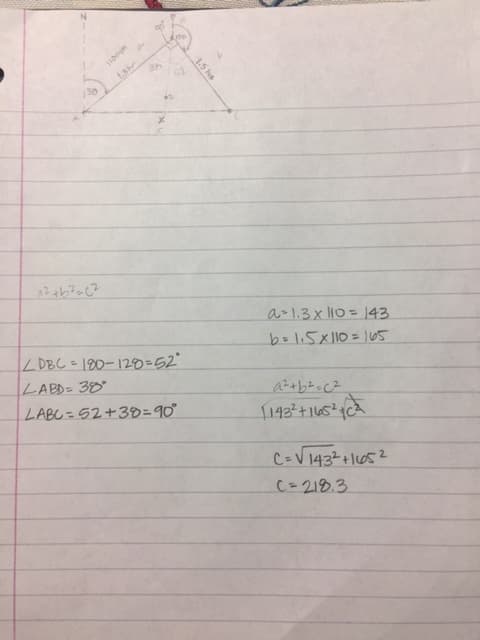 N
38
1.3h
1.5 hrs
X
a²+b²=c²
a=1.3x110=143
b=1.5x110=165
∠DBC=180-128=52°
∠ABD=38°
∠ABC=52+38=90°
a²+b²=c²
√143²+165² √c²
c=√143²+165²
c=218.3